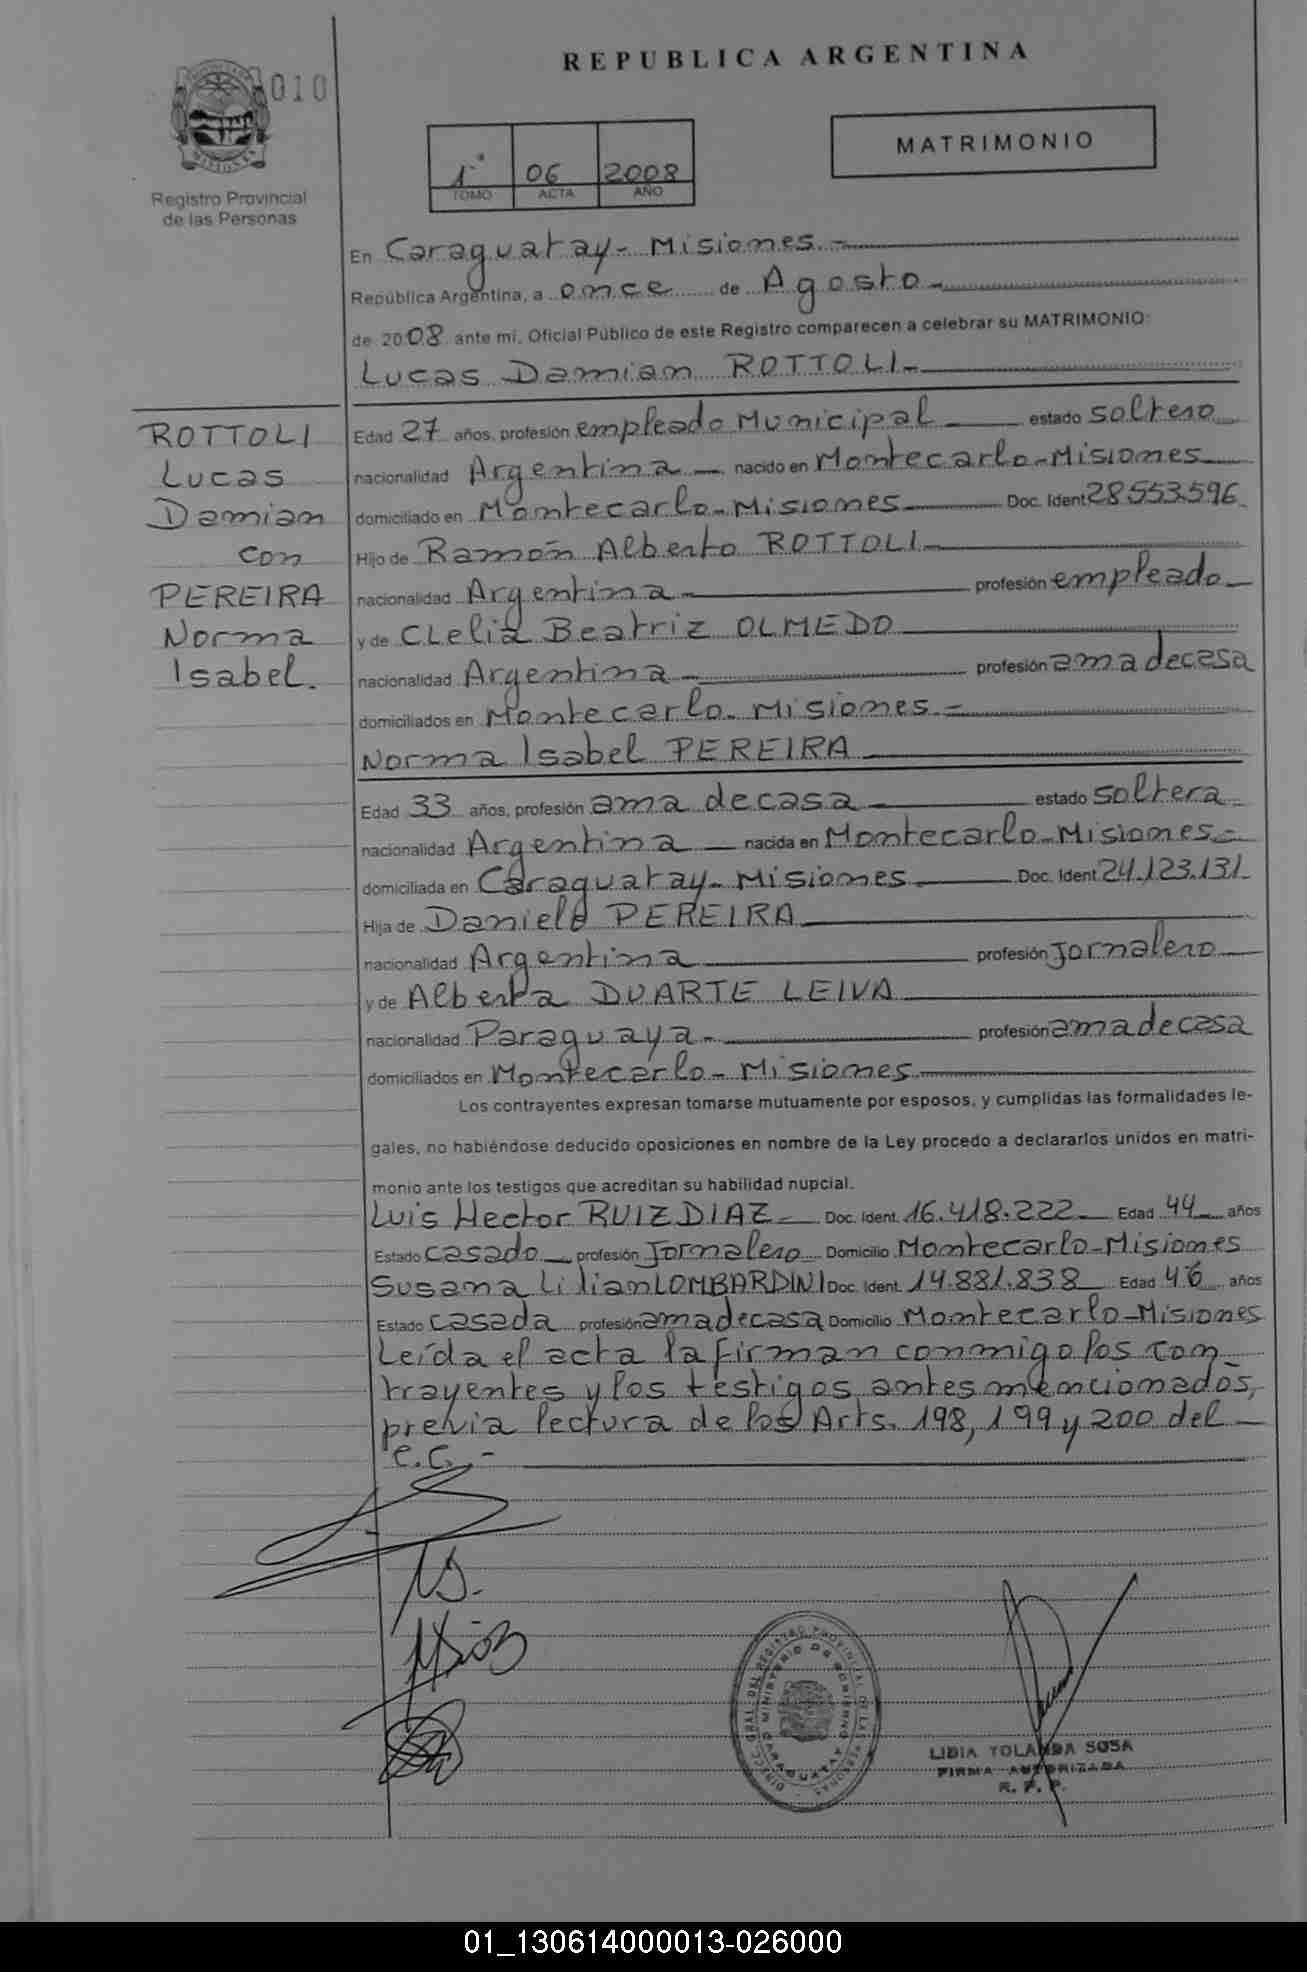 REPUBLICA ARGENTINA
010
MATRIMONIO
1° 06 2008
TOMO ACTA AÑO
MISIONES
Registro Provincial
de las Personas
En Caraguatay - Misiones.-
República Argentina, a once de Agosto.-
de 2008 ante mi, Oficial Público de este Registro comparecen a celebrar su MATRIMONIO:
Lucas Damian ROTTOLI.-
ROTTOLI
Lucas
Damian
con
PEREIRA
Norma
Isabel.
Edad 27 años, profesión empleado Municipal estado soltero
nacionalidad Argentina nacido en Montecarlo-Misiones
domiciliado en Montecarlo-Misiones Doc. Ident. 28.553.596
Hijo de Ramón Alberto ROTTOLI
nacionalidad Argentina profesión empleado
y de CLelia Beatriz OLMEDO
nacionalidad Argentina profesión ama de casa
domiciliados en Montecarlo-Misiones.-
Norma Isabel PEREIRA
Edad 33 años, profesión ama de casa estado soltera
nacionalidad Argentina nacida en Montecarlo-Misiones.-
domiciliada en Caraguatay-Misiones Doc. Ident. 24.123.131
Hija de PEREIRA
nacionalidad Argentina profesión Jornalero
y de Alberta DUARTE LEIVA
nacionalidad Paraguaya profesión ama de casa
domiciliados en Montecarlo-Misiones
Los contrayentes expresan tomarse mutuamente por esposos, y cumplidas las formalidades le-
gales, no habiéndose deducido oposiciones en nombre de la Ley procedo a declararlos unidos en matri-
monio ante los testigos que acreditan su habilidad nupcial.
Luis Hector RUIZ DIAZ Doc. Ident. 16.418.222 Edad 44 años
Estado casado profesión Jornalero Domicilio Montecarlo-Misiones
Susana Lilian LOMBARDINI Doc. Ident. 14.881.838 Edad 46 años
Estado casada profesión ama de casa Domicilio Montecarlo-Misiones
Leída el acta la firman conmigo los con-
trayentes y los testigos antes mencionados,
previa lectura de los Arts. 198, 199 y 200 del
C.C.-
DIRECC. GRAL. DEL REGISTRO PROVINCIAL DE LAS PERSONAS
MINISTERIO DE GOBIERNO
CARAGUATAY
LIDIA YOLANDA SOSA
FIRMA AUTORIZADA
R. P. P.
01_130614000013-026000